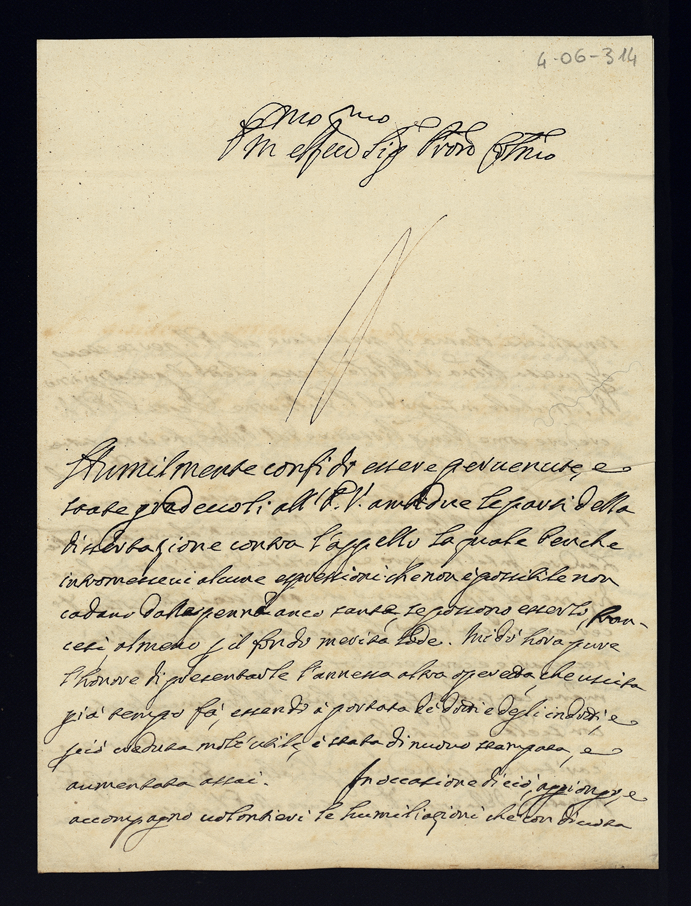 4-06-314
Humilmente confido essere pervenute, e
state gradevoli all' P. V. ambedue le parti della
dissertazione contra l'appello la quale benche
intromessevi alcune espressioni che non è possibile non
cadano dalla penna anco sante, se possono esserlo, fran-
cesi, almeno il fondo merita lode. Mi dò hora pure
l'honore di presentarle l'annessa altra operetta, che uscita
già tempo fà, essendo à portata de' dotti e degli indotti, e
perciò creduta molt' utile, è stata di nuovo stampata, e
aumentata assai. In occasione di ciò aggiongo, e
accompagno volontieri le humiliazioni che con divota